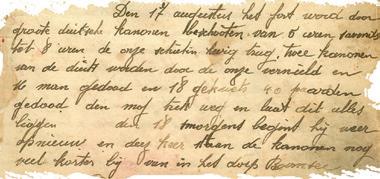 Den 17 augustus het fort word door
groote duitsche kanonen beschoten van 6 uren smorends
tot 8 uren de onze schieten hevig trug. twee kanonen
van de duits worden door de onze vernield en
16 man gedood en 18 gekwets 40 paarden
gedood den mof trek weg en laat dit alles
liggen den 18 smorgens begint hij weer
opnieuw en dees keer staan de kanonen nog
veel korter bij van in het dorp